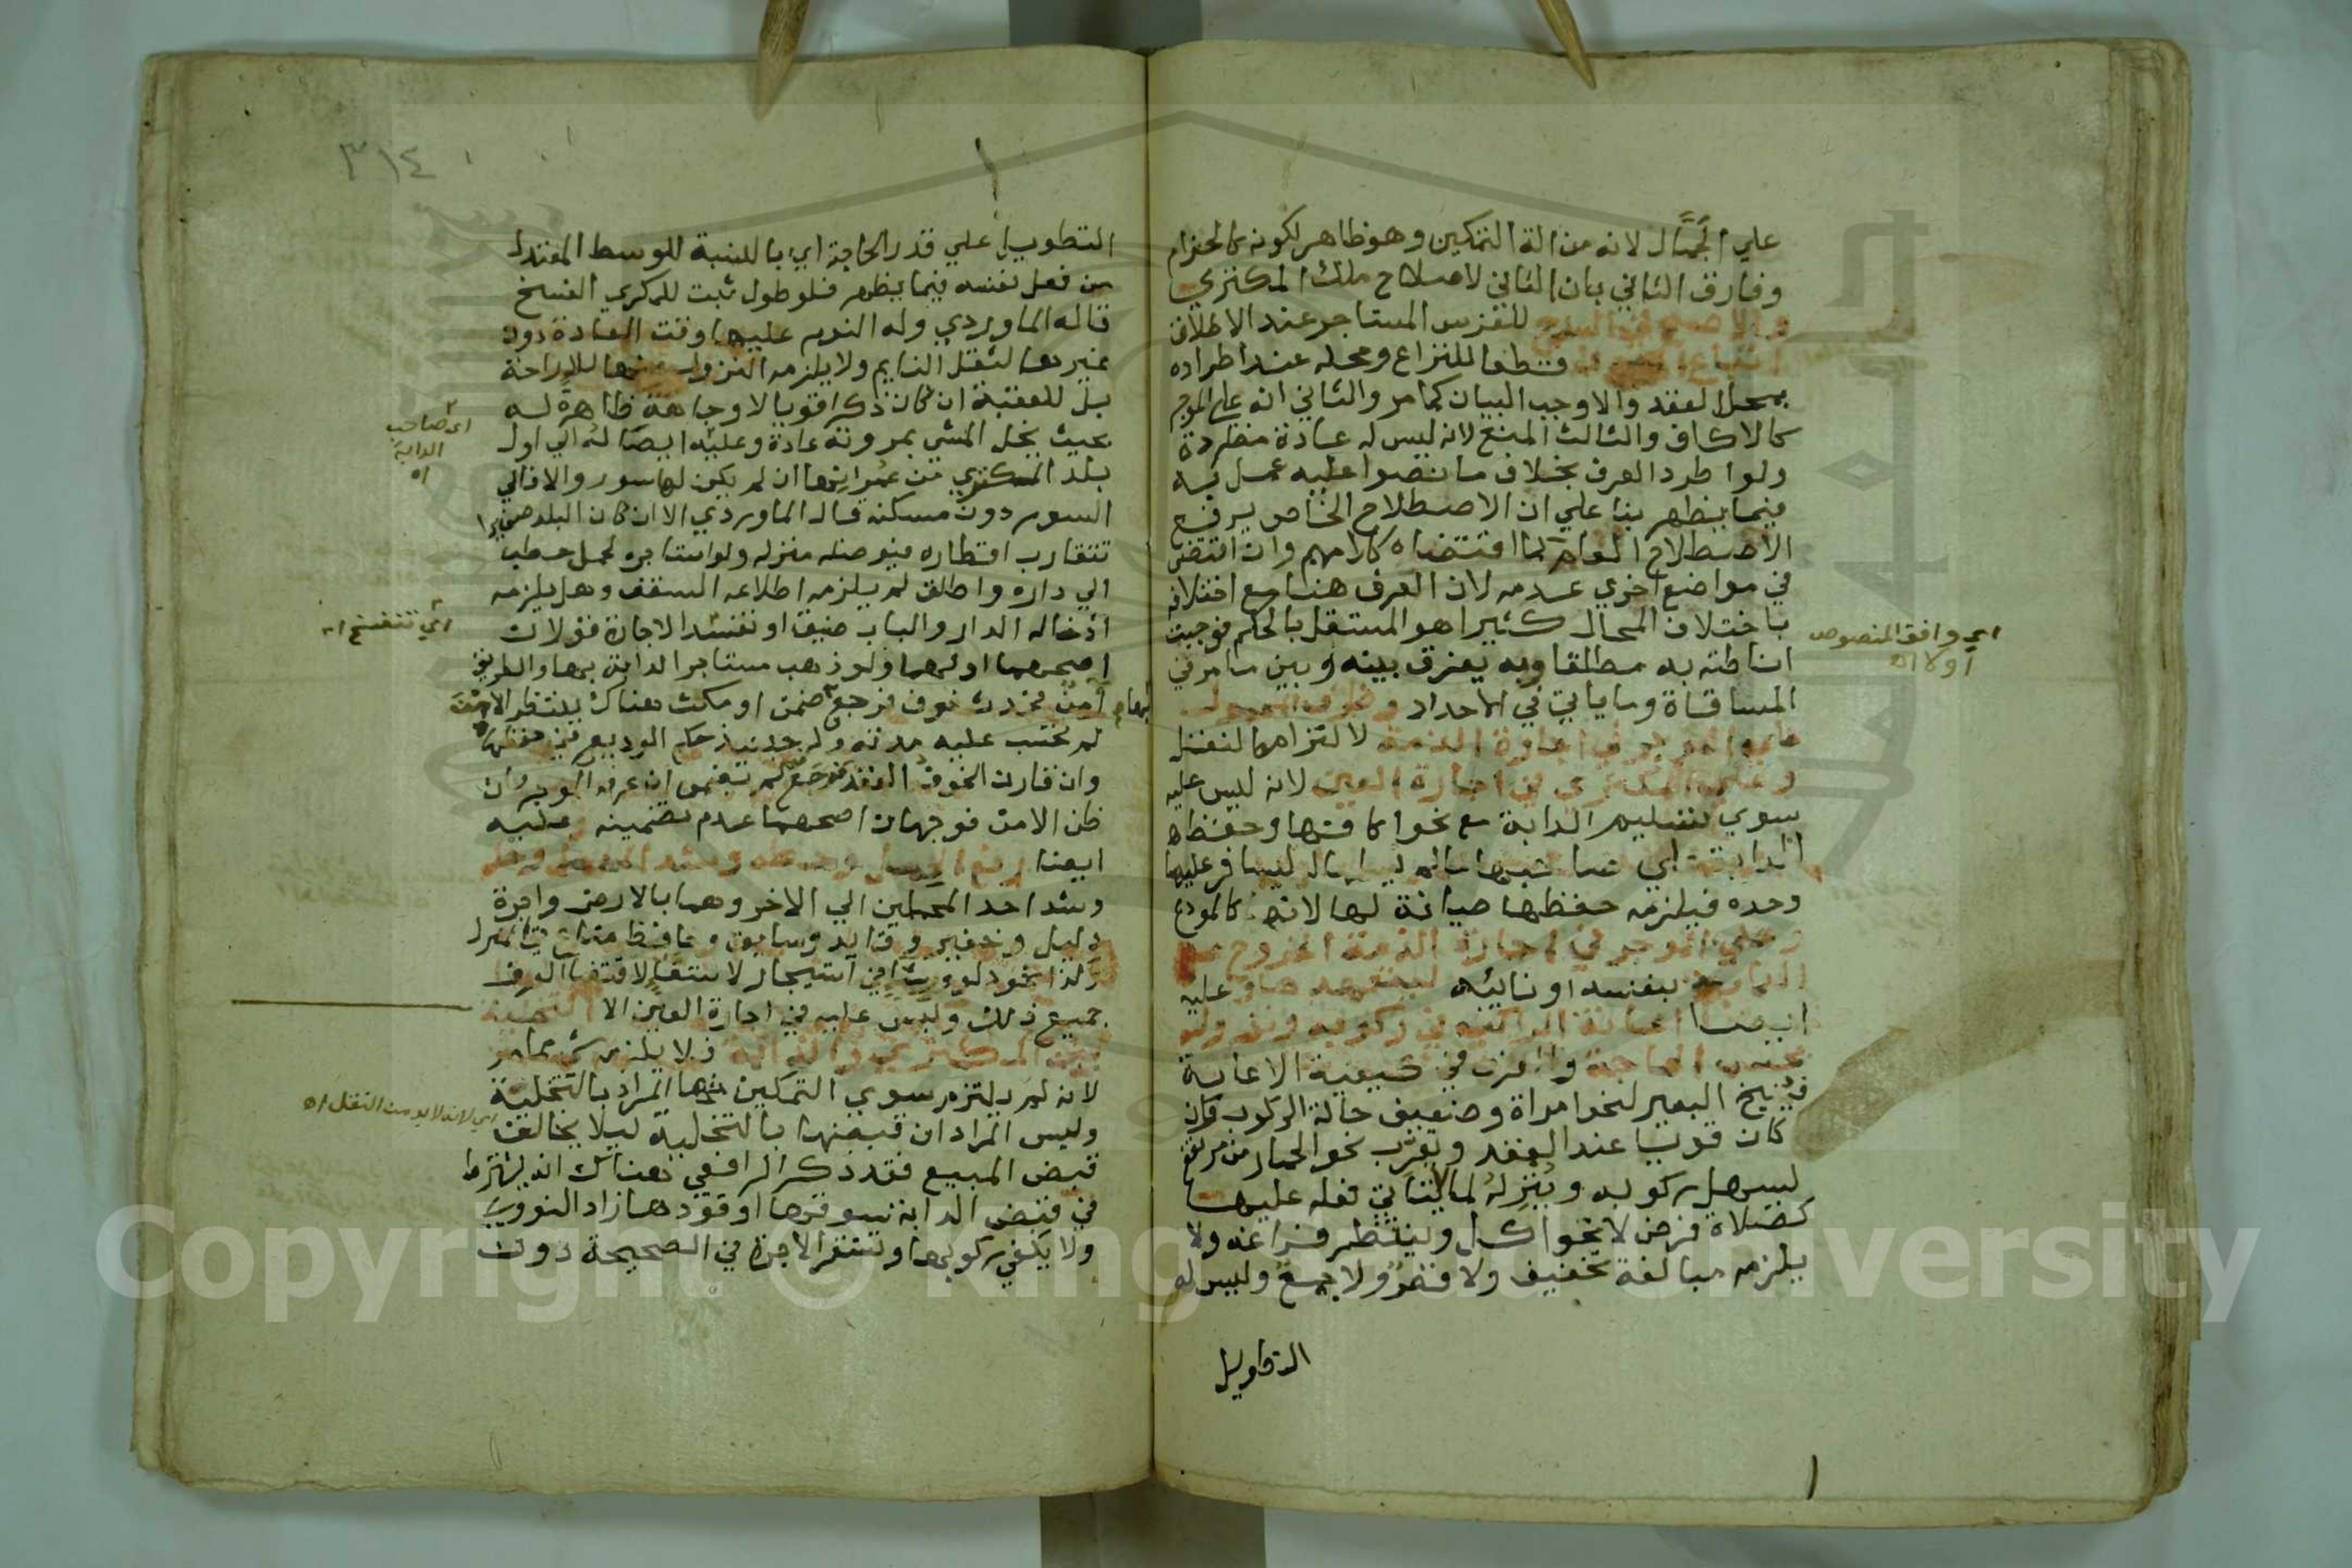 علي الجمَّال لانه من الة التمكين وهو ظاهر لكونه كالحزام
وفارق الثاني بان الثاني لاصلاح ملك المكتري
والاصح في السرج للفرس المستاجر عند الاطلاق
اتباع العرف قطعا للنزاع ومحله عند اطراده
بمحل العقد والا وجب البيان كما مر والثاني انه علي الموجر
كالاكاف والثالث المنع لانه ليس له عادة مطردة
ولو اطرد العرف بخلاف ما نصوا عليه عمل به
فيما يظهر بنا علي ان الاصطلاح الخاص يرفع
الاصطلاح العام كما اقتضاه كلامهم وان اقتضي
في مواضع اخري عدمه لان العرف هنا مع اختلافه
باختلاف المحال كثيرا هو المستقل بالحكم فوجبت
اناطته به مطلقا وبه يفرق بينه وبين ما مر في
المساقاة وما ياتي في الاحداد وظرف المحمول
علي الموجر في اجارة الذمة لالتزامه النقل
وعلي المكتري في اجارة العين لانه ليس عليه
سوي تسليم الدابة مع نحو اكافها وحفظ
الدابة اي صاحبها ليسافر عليها
وحده فيلزمه حفظها صيانة لها لانه كالمودع
وعلي الموجر في اجارة الذمة الخروج مع
الدابة بنفسه او نائبه ليتعهدها وعليه
ايضا اعانة الراكب في ركوبه ونزوله
بحسب الحاجة والعرف في كيفية الاعانة
فينيخ البعير لنحو امراة وضعيف حالة الركوب وان
كان قويا عند العقد ويقرب نحو الحمار من مرتفع
ليسهل ركوبه وينزله لما لا يتاتي فعله عليها
كصلاة فرض لا نحو اكل وينتظر فراغه ولا
يلزمه مبالغة تخفيف ولا قصر ولا جمع وليس له
التطويل
اي وافق المنصوص
اولا اه
٣١٤
التطويل علي قدر الحاجة اي بالنسبة للوسط المعتدل
من فعل نفسه فيما يظهر فلو طول ثبت للمكري الفسخ
قاله الماوردي وله النوم عليها وقت العادة دون
غيرها لثقل النايم ولا يلزمه النزول عنها للاراحة
بل للعقبة ان كان ذكرا قويا لا وجاهة ظاهرة له
بحيث يخل المشي بمروته عادة وعليه ايصاله الي اول
بلد المكتري من عمرانها ان لم يكن لها سور والا فالي
السور دون مسكنه قال الماوردي الا ان كان البلد صغيرا
تتقارب اقطاره فيوصله منزله ولو استاجره لحمل حطب
الي داره واطلق لم يلزمه اطلاعه السقف وهل يلزمه
ادخاله الدار والباب ضيق او تفسد الاجارة قولان
اصحهما اولهما ولو ذهب مستاجر الدابة بها والطريق
آمن فحدث خوف فرجع بها ضمن او مكث هناك ينتظر الامن
لم تحسب عليه مدته وله حينيذ حكم الوديع في حفظها
وان قارن الخوف العقد فرجع لم يضمن ان عرفه الموجر وان
ظن الامن فوجهان اصحهما عدم تضمينه وعليه
ايضا رفع الحمل وحطه وشد المحمل وحله
وشد احد المحملين الي الاخر وهما بالارض واجرة
دليل وخفير وقايد وسايق وحافظ متاع في المنزل
وكذا نحو دلو ورشا في استيجار لاستقا لاقتضا العرف
جميع ذلك وليس عليه في اجارة العين الا التخلية
بين المكتري والدابة فلا يلزمه شي مما مر
لانه لم يلتزم سوي التمكين منها المراد بالتخلية
وليس المراد ان قبضها بالتخلية ليلا يخالف
قبض المبيع فقد ذكر الرافعي هناك انه يشترط
في قبض الدابة سوقها او قودها زاد النووي
ولا يكفي ركوبها وتستقر الاجرة في الصحيحة دون
اي صاحب
الدابة
اه
اي تنفسخ اه
اي لانه لا بد من النقل اه
Copyright © King Saud University